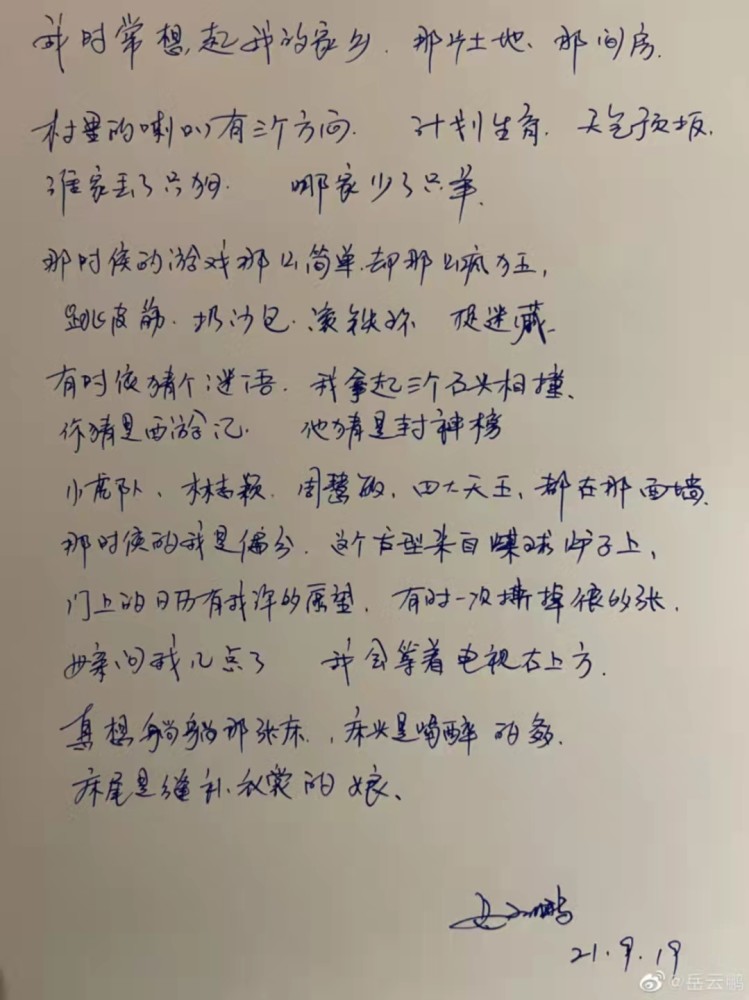 我时常想起我的家乡.那片土地、那间房.
村里的喇叭有三个方向. 计划生育.天气预报.
谁家丢了只狗. 哪家少了只羊.
那时候的游戏那么简单.却那么疯狂,
跳皮筋.扔沙包.滚铁环 捉迷藏.
有时候猜个谜语.我拿起三个石头相撞、
你猜是西游记. 他猜是封神榜
小虎队、林志颖、周慧敏、四大天王、都在那面墙.
那时候的我是偏分.这个发型来自煤球炉子上、
门上的日历有我许的愿望.有时一次撕掉很多张.
母亲问我几点了 我会等着电视右上方.
真想躺躺那张床.,床头是喝醉的爹.
床尾是缝补衣裳的娘、
岳云鹏
21.9.19
@岳云鹏